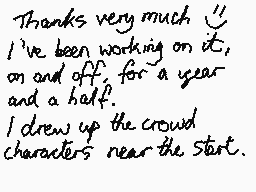 Thanks very much !!
I've been working on it,
on and off, for a year
and a half.
I drew up the crowd
characters near the start.